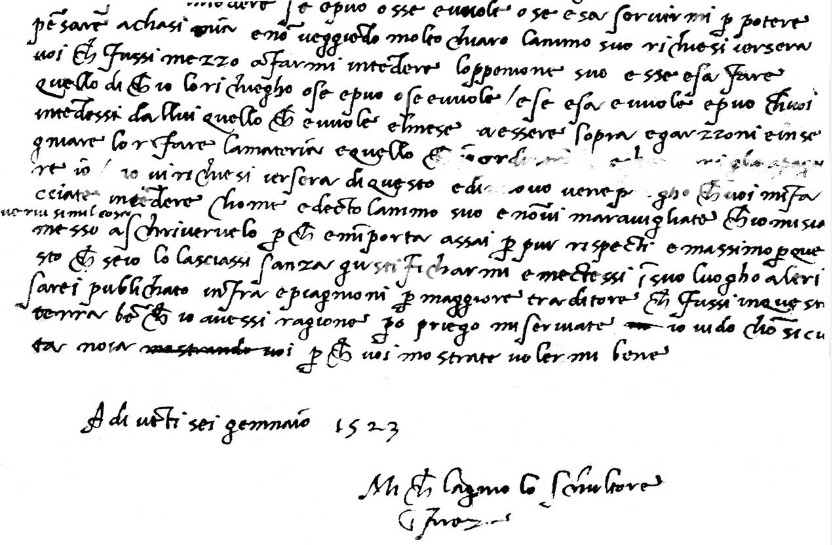 intedere se epuo o sse e vuole o se esa servirmi p potere
pēsare achasi mia e nō veggiēdo molto chiaro lanimo suo richiesi iersera
voi ch fussi mezzo a farmi intēdere loppenione suo e sse esa fare
quello di ch io lo richiegho o se epuo o se e vuole / e se esa e vuole e puo ch voi
intēdessi da llui quello ch e vuole elmese a essere sopra egarzzoni e inse
gniare lor fare lamateria e quello ch
re io / io vi richiesi iersera di questo e di nuovo vene p gho ch voi mi fa
cciate intēdere chome e decto lanimo suo e nōvi maravigliate ch io mi sia
messo a schrivervelo p ch e mīporta assai p piu rispecti e massimo p que
sto ch se io lo lasciassi sanza giustificharmi e mectessi ī suo luogho altri
sarei publichato infra e piagnioni p maggiore traditore ch fussi in questa
terra bē ch io avessi ragione po priego mi serviate io vi do chō sicu
rta noia mostrando voi p ch voi mostrate volermi bene
A di vēti sei gennaio 1523
Mi ch lagniolo schultore